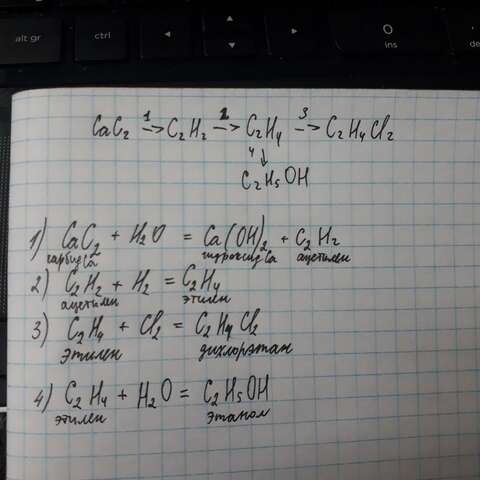 alt gr ctrl 0 ins
CaC₂ 1→ C₂H₂ 2→ C₂H₄ 3→ C₂H₄Cl₂
4↓
C₂H₅OH
1) CaC₂ + H₂O = Ca(OH)₂ + C₂H₂
карбид Ca гидроксид Ca ацетилен
2) C₂H₂ + H₂ = C₂H₄
ацетилен этилен
3) C₂H₄ + Cl₂ = C₂H₄Cl₂
этилен дихлорэтан
4) C₂H₄ + H₂O = C₂H₅OH
этилен этанол